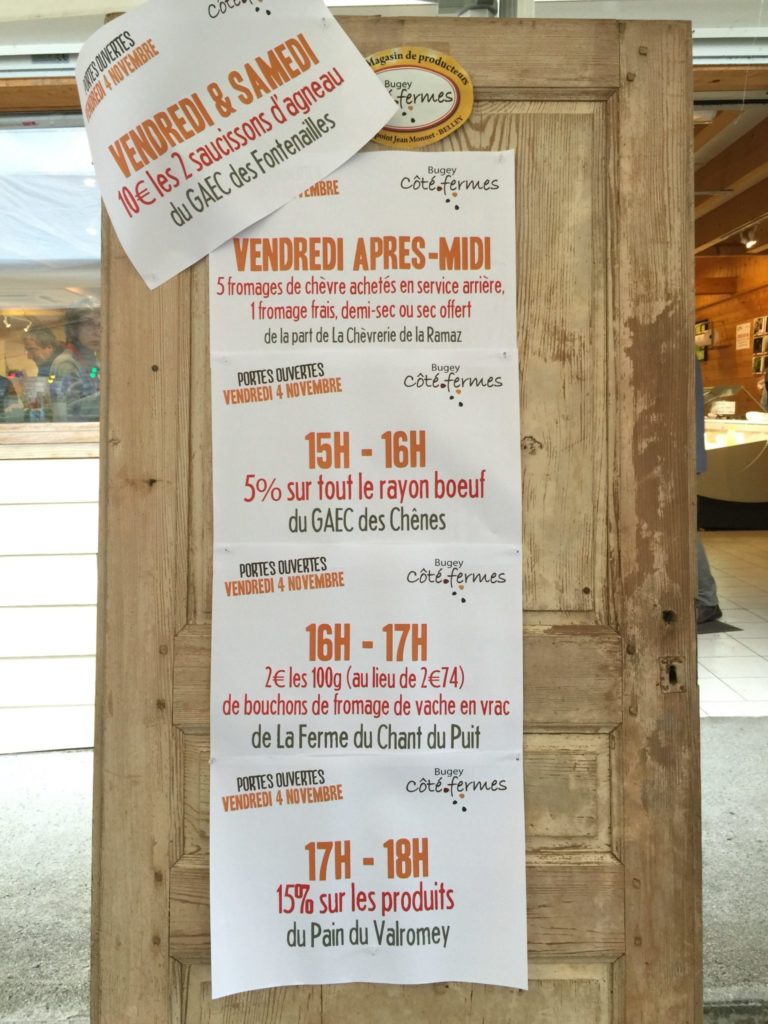 Côté fermes
PORTES OUVERTES
VENDREDI 4 NOVEMBRE
VENDREDI & SAMEDI
10€ les 2 saucissons d'agneau
du GAEC des Fontenailles
Magasin de producteurs
Bugey
Côté fermes
point Jean Monnet - BELLEY
NOVEMBRE
Bugey
Côté fermes
VENDREDI APRES-MIDI
5 fromages de chèvre achetés en service arrière,
1 fromage frais, demi-sec ou sec offert
de la part de La Chèvrerie de la Ramaz
PORTES OUVERTES
VENDREDI 4 NOVEMBRE
Bugey
Côté fermes
15H - 16H
5% sur tout le rayon boeuf
du GAEC des Chênes
PORTES OUVERTES
VENDREDI 4 NOVEMBRE
Bugey
Côté fermes
16H - 17H
2€ les 100g (au lieu de 2€74)
de bouchons de fromage de vache en vrac
de La Ferme du Chant du Puit
PORTES OUVERTES
VENDREDI 4 NOVEMBRE
Bugey
Côté fermes
17H - 18H
15% sur les produits
du Pain du Valromey